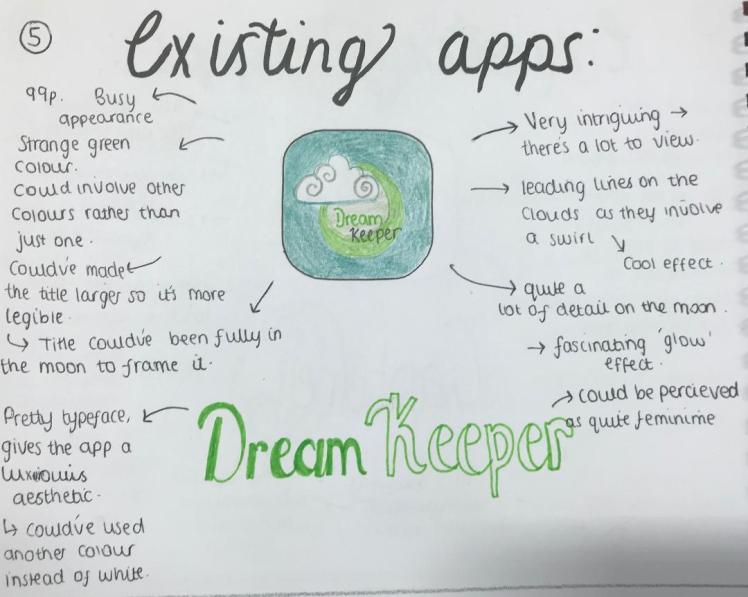 5
existing apps:
99p. Busy
appearance
Strange green
colour.
Could involve other
colours rather than
just one.
Could've made
the title larger so it's more
legible.
↳ Title could've been fully in
the moon to frame it.
Pretty typeface,
gives the app a
luxiouis
aesthetic.
↳ could've used
another colour
instead of white.
Dream
Keeper
Dream Keeper
Very intriguing →
there's a lot to view.
leading lines on the
clouds as they involve
a swirl
Cool effect.
quite a
lot of detail on the moon.
→ fascinating 'glow'
effect.
could be percieved
as quite feminime